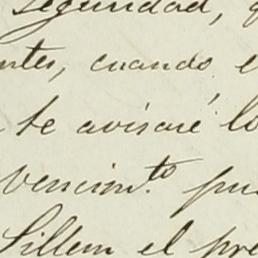 seguridad,
ntes, cuando e
te avisaré lo
vencim.to pu
Sillem el pre